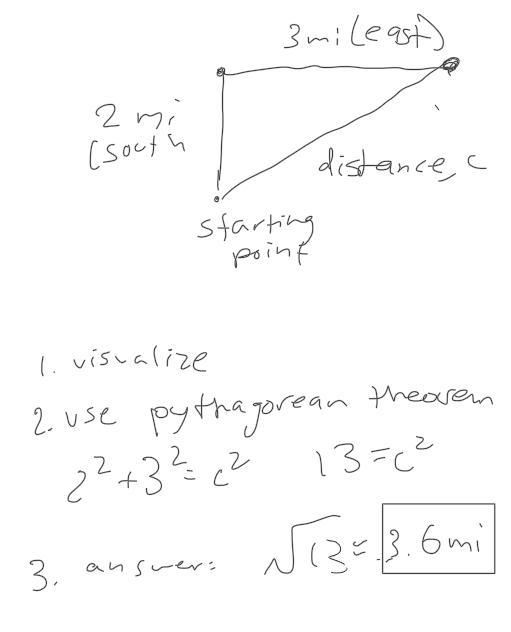 3mi (east)
2 mi
(south
distance, c
starting
point
1. visualize
2. use pythagorean theorem
2²+3²=c² 13=c²
3. answer: √13≈3.6mi